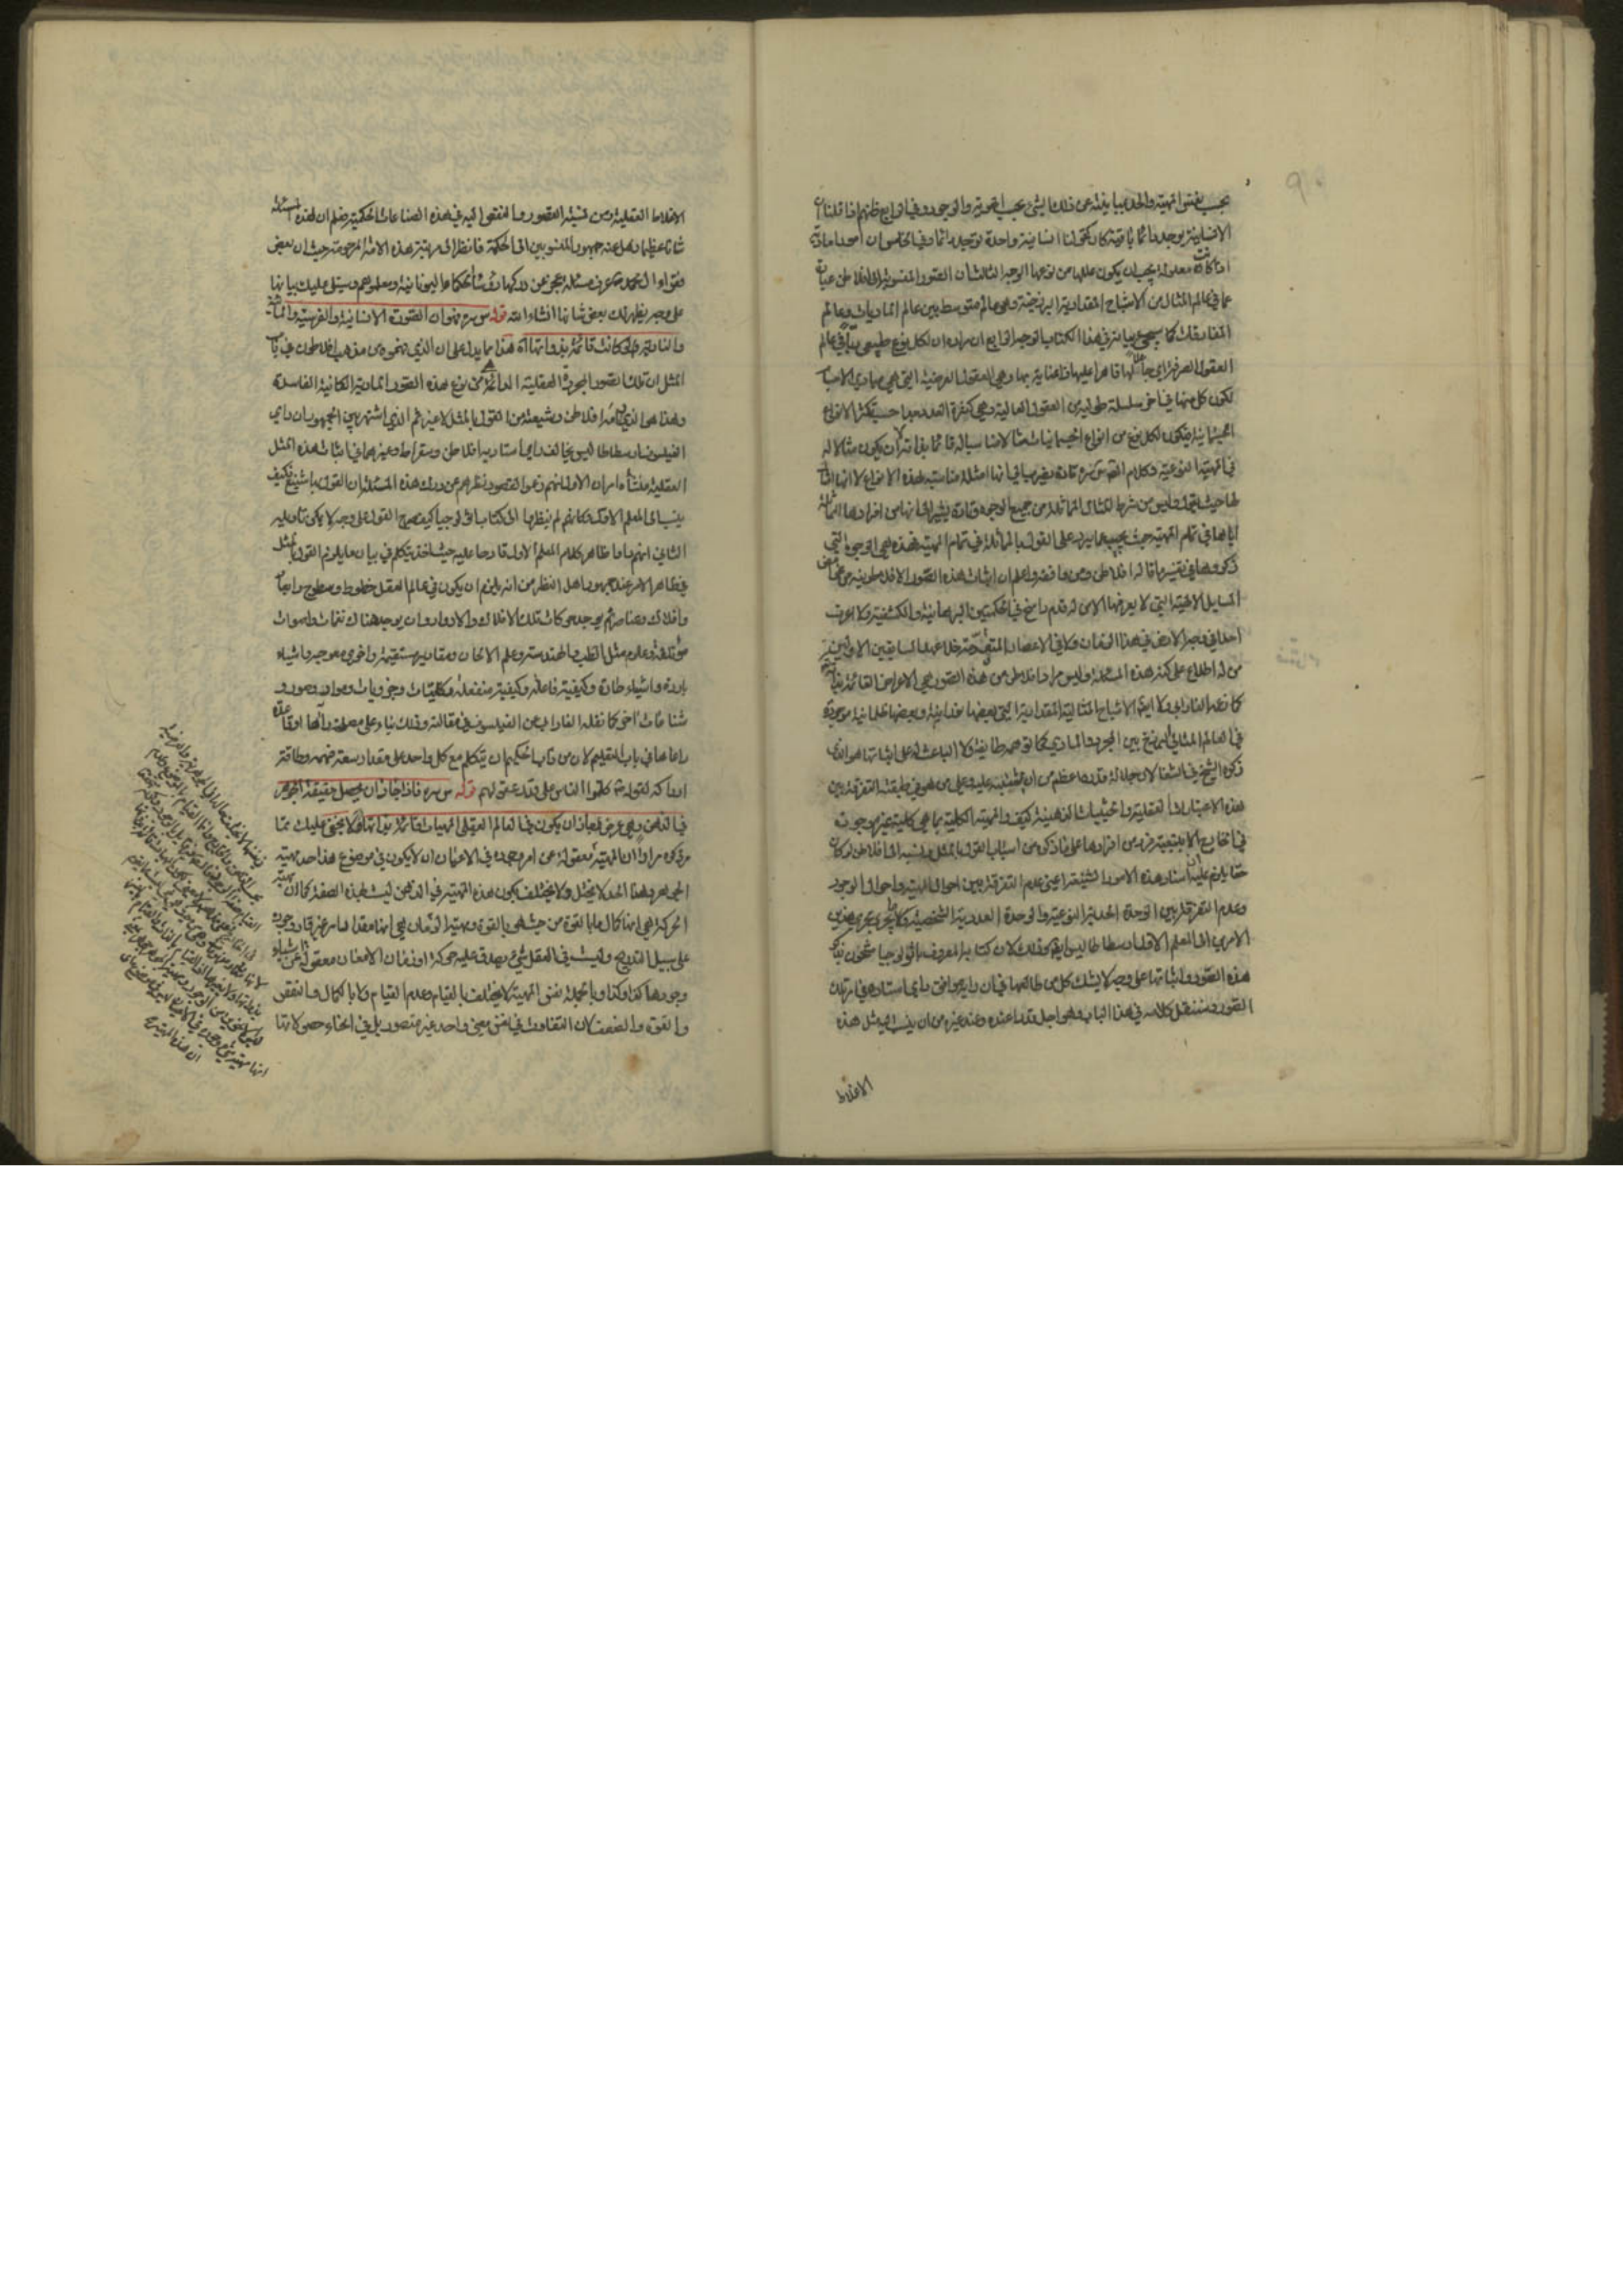 بحسب نفس المهية والحد مباينة عن ذلك الشيء بحسب الهوية والوجود وفي الرابع ظنهم اذا قلنا ان
الانسانية توجد دائما باقية كان كقولنا انسانية واحدة توجد دائما وفي الخامس ان امورا مادية
اذا كانت معلولة يجب ان يكون عللها من نوعها الوجه الثالث ان الصور المنسوبة الى افلاطن عبارة
عما في عالم المثال من الاشباح المقدارية البرزخية وهو عالم متوسط بين عالم الماديات وعالم
المفارقات كما سيجيء بيانه في هذا الكتاب الوجه الرابع ان مراده ان لكل نوع طبيعي ربا في عالم
العقول الصرفة اي جاعلا لها قاهرا عليها ذا عناية بها وهي العقول العرضية التي هي مبادي الاجسام
لكون كل منها في اخر سلسلة طولية من العقول العالية وهي كثيرة العدد جدا حسب تكثر الانواع
الجسمانية فيكون لكل نوع من انواع الجسمانيات مثالا مناسبا له قائما بذاته لا ان يكون مثالا له
في المهية النوعية وكلام القوم تارة يفيد انها امثلة مناسبة لهذه الانواع لا انها
حيث يقول وليس من شرط المثال المماثلة من جميع الوجوه وتارة يشير الى انها من افرادها المماثلة
اياها في تمام المهية حيث يجيب عما يرد على القول بالمماثلة في تمام المهية فهذه هي الوجوه التي
ذكروها في تفسير ما قاله افلاطن ومن وافقه واعلم ان اثبات هذه الصور الافلاطونية من غوامض
المسايل الالهية التي لا يعرفها الا من له قدم راسخ في الحكمتين البرهانية والكشفية ولا اعرف
احدا في وجه الارض في هذا الزمان ولا في الاعصار المتقدمة خلا عهد السابقين الاولين
من له اطلاع على كنه هذه المسئلة وليس مراد افلاطن من هذه الصور هي الاعراض القائمة بذاته
كما زعمه الفارابي ولا ايضا الاشباح المثالية المقدارية التي بعضها نورانية وبعضها ظلمانية موجودة
في العالم المثالي البرزخ بين المجرد والمادي كما توهمه طايفة ولا الباعث له على اثباتها هو الذي
ذكره الشيخ في الشفا لان جلالة قدره اعظم من ان يشتبه عليه وعلى من هو في طبقته التفرقة بين
هذه الاعتبارات العقلية والحيثيات الذهنية كيف والمهية الكلية بما هي كلية غير موجودة
في الخارج الا بتبعية فرد من افرادها على ما ذكره من اسباب القول بالمثل ونسبه الى افلاطن لو كان
حقا يلزم عليه اسناد هذه الامور الشنيعة اعني عدم التفرقة بين احوال المهية واحوال الوجود
وعدم التفرقة بين الوحدة الحدية النوعية والوحدة العددية الشخصية وما يجري مجرى هذين
الامرين الى المعلم الاول ارسطاطاليس ايضا وذلك لان كتابه المعروف باثولوجيا مشحون بذكر
هذه الصور واثباتها على وجه لا يشك كل من طالعها في ان رايه موافق راي استاده في اثبات
الصور وسننقل كلامه في هذا الباب وهو اجل قدرا عنده وعند غيره من ان ينسب اليه مثل هذه
الاغلاط
الاغلاط العقلية ومن نسبة القصور والنقص اليه في هذه الصناعات الحكمية فعلم ان لهذه المسئلة
شانا عظيما ذهل عنه جمهور المنسوبين الى الحكمة فانظر الى مرتبة هذه الامة المرحومة حيث ان بعض
فقراء ال محمد عرف مسئلة عجز عن دركها حكما اليونانية ومعلموهم وسيتلى عليك بيانها
على وجه يظهر لك بعض شانها انشاء الله قوله س سره فهو ان الصورة الانسانية والفرسية والمائية
والنارية لو كانت قائمة بذواتها اه هذا مما يدل على ان الذي فهموه من مذهب افلاطون في باب
المثل ان تلك الصور المجردة العقلية الدائمة من نوع هذه الصور المادية الكائنة الفاسدة
وهذا هو الذي رامه افلاطن وشيعته من القول بالمثل لا غير ثم الذي اشتهر بين الجمهور ان راي
الفيلسوف ارسطاطاليس يخالف راي استاديه افلاطن وسقراط وغيرهما في اثبات هذه المثل
العقلية منشأه امران الاول انهم زعموا لقصور نظرهم عن درك هذه المسئلة ان القول بها شنيع فكيف
ينسب الى المعلم الاول فكانهم لم ينظروا الى كتاب اثولوجيا كيف صرح القول على وجه لا يمكن تاويله
الثاني انهم راوا ظاهر كلام المعلم الاول قادحا عليه حيث اخذ يتكلم في بيان ما يلزم القول بالمثل
في ظاهر الامر عند جمهور اهل النظر من انه يلزم ان يكون في عالم العقل خطوط وسطوح واجسام
وافلاك وعناصر ثم يوجد حركات تلك الافلاك والادوار وان يوجد هناك نغمات واصوات
مؤتلفة وعلوم مثل الطب والهندسة وعلم الالحان ومقادير مستقيمة واخرى معوجة واشياء
باردة واشياء حارة وكيفية فاعلة وكيفية منفعلة وكليات وجزويات ومواد وصور و
شناعات اخر كما نقله الفارابي من الفيلسوف في مقالته وذلك بناء على مصلحة راها او قاعدة
راعاها في باب التعليم لان من داب الحكيم ان يتكلم مع كل واحد على مقدار سعة فهمه وطاقة
ادراكه لقوله كلموا الناس على قدر عقولهم قوله س سره فاذا جاز ان يحصل حقيقة الجوهر
في الذهن وهي عرض فجاز ان يكون في العالم العقلي المهيات قائمة بذاتها اه لا يخفى عليك مما
مر ذكره مرارا ان المهية معقولة عن امر وجوده في الاعيان ان لا يكون في موضوع هذا حد مهية
الجوهر وهذا الحد لا يختل ولا يختلف بكون هذه المهية في الذهن ليست بهذه الصفة كما ان مهية
الحركة هي انها كمال ما بالقوة من حيث هي بالقوة ومهية الزمان هي انها مقدار امر غير قار وجوده
على سبيل التدريج وليست في العقل شيء يصدق عليه حركة او زمان الا معان معقولة عن اشياء
وجودها كذا وكذا وبالجملة نفس المهية لا يختلف بالقيام وعدم القيام ولا بالكمال والنقص
والقوة والضعف لان التفاوت في نفس معنى واحد غير متصور بل في انحاء حصولاتها